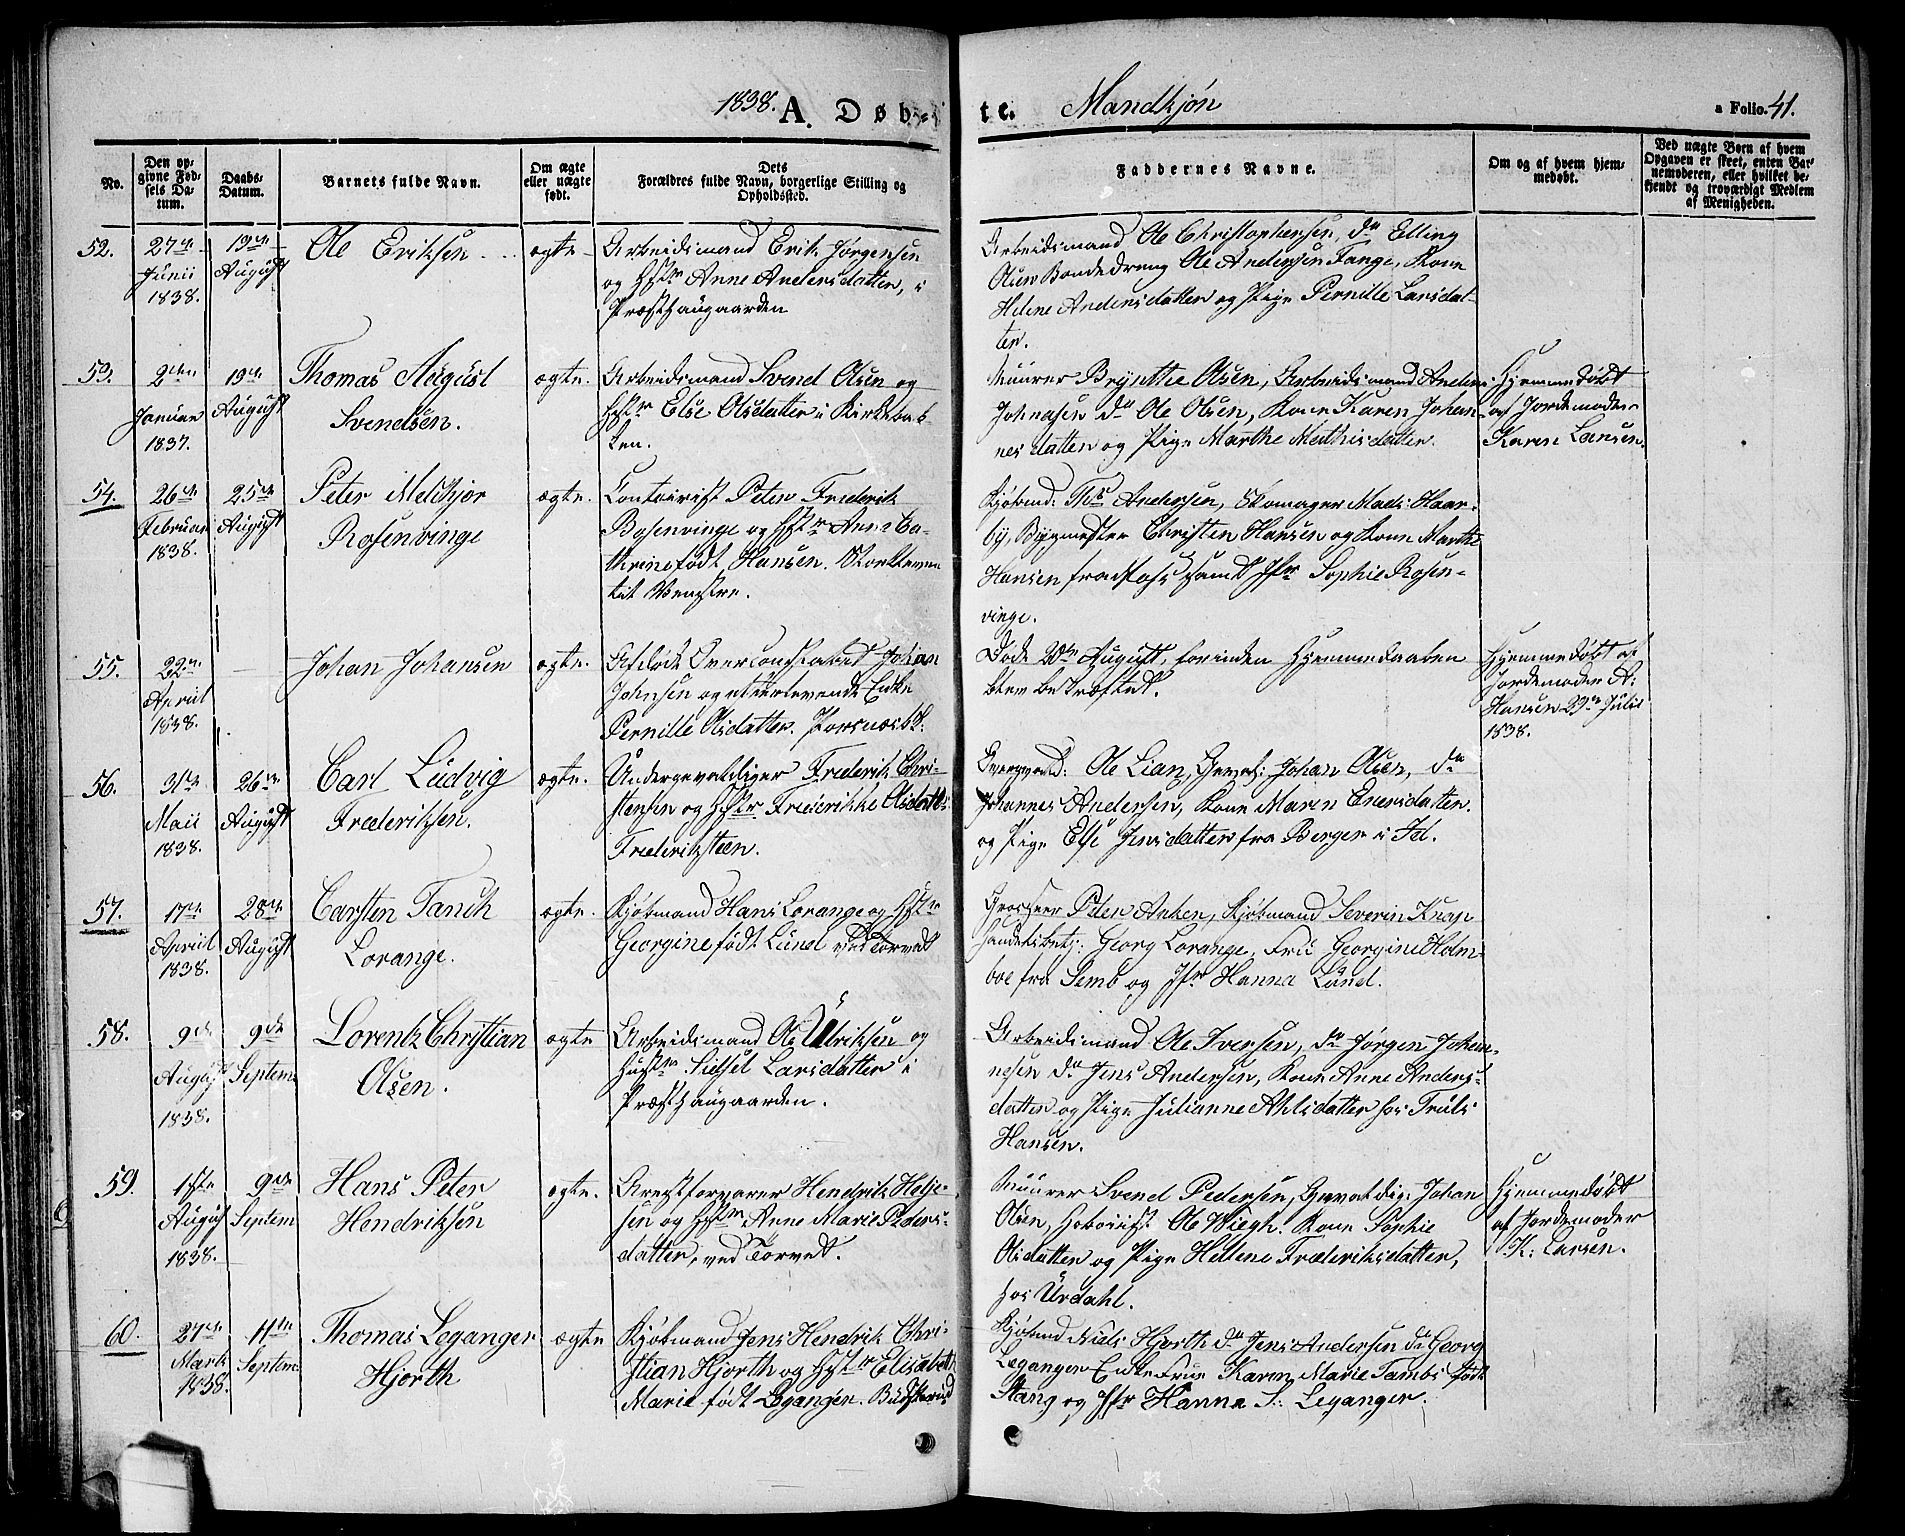 1838. A. Døb-
te. Mandkjøn
a Folio. 41.
No.
Den op-
givne Fød-
sels Da-
tum.
Daabs-
Datum.
Barnets fulde Navn.
Om ægte
eller uægte
født.
Dets
Forældres fulde Navn, borgerlige Stilling og
Opholdssted.
Faddernes Navne.
Om og af hvem hjem-
medøbt.
Ved uægte Børn af hvem
Opgaven er skeet, enten Bar-
nemoderen, eller hvilket be-
kjendt og troværdigt Medlem
af Menigheden.
52.
27de
Junii
1838.
19de
August
Ole Eriksen
ægte
Arbeidsmand Erik Jørgensen
og Hstr Anne Andersdatter, i
Præsthaugaarden
Arbeidsmand Ole Christophersen, do Elling
Olsen Bondedreng Ole Andersen Tange, Kone
Helene Andersdatter og Pige Pernille Larsdat-
ter.
53.
2den
Januar
1837.
19de
August
Thomas August
Svendsen.
ægte.
Arbeidsmand Svend Olsen og
Hstr Else Olsdatter i Kirkebak-
ken.
Muurer Brynthe Olsen, Arbeidsmand Anders
Johnsen do Ole Olsen, Kone Karen Johan-
nesdatter og Pige Marthe Mathisdatter.
Hjemmedøbt
af Jordemoder
Karen Larsen.
54.
26de
Februar
1838.
25de
August
Peter Melchjor
Rosenvinge
ægte.
Contoirist Peter Frederik
Rosenvinge og Hstr Anne Ca-
thrine født Hansen.
Kjøbmd: Ths Andersen, Skomager Mads Haar-
by, Bygmester Christen Hansen og Kone Marthe
Hansen samt Jfr Sophie Rosen-
vinge.
55.
22de
April
1838.
Johan Johansen
ægte.
Afdøde Overconstabel Johan
Johnsen og efterlevende Enke
Pernille Olsdatter.
Døde August, forinden Hjemmedaaben
blev bekræftet.
Hjemmedøbt af
Jordemoder A:
Hansen 29de Julii
1838.
56.
31te
Maii
1838.
26de
August
Carl Ludvig
Frederiksen.
ægte.
Undergevaldiger Frederik Chri-
stensen og Hstr Frederikke Olsdatter
Frederiksteen.
Ole Lian, Johan Olsen, do
Johannes Andersen, Kone Maren Enersdatter
og Pige Else Jensdatter fra Berger i Id.
57.
17de
April
1838.
28de
August
Carsten Tank
Lorange.
ægte.
Kjøbmand Hans Lorange og Hstr
Georgine født Lund ved Torvet
Grosserer Peter Anker, Kjøbmand Severin Knap
Handelsbetj: Georg Lorange, Frue Georgine Holm-
boe fra Semb og Jfr Hanna Lund.
58.
9de
August
1838.
9de
Septem
Lorentz Christian
Olsen.
ægte
Arbeidsmand Ole Ulriksen og
Hustr Sidsel Larsdatter i
Præsthaugaarden.
Arbeidsmand Ole Iversen, do Jørgen Johan-
nesen do Jens Andersen, Kone Anne Anders-
datter og Pige Julianne Ahlsdatter hos Truls
Hansen.
59.
1ste
August
1838.
9de
Septem
Hans Peter
Hendriksen
ægte.
Arrestforvarer Hendrik Helje-
sen og Hstr Anne Marie Peders-
datter, ved Torvet.
Muurer Svend Pedersen, Gevaldig: Johan
Olsen, Hoboist Ole Wiegh. Kone Sophie
Olsdatter og Pige Hellene Frederiksdatter,
hos Urdahl.
Hjemmedøbt
af Jordemoder
K: Larsen.
60.
27de
Marts
1838.
11te
Septem
Thomas Leganger
Hjorth
ægte
Kjøbmand Jens Hendrik Chri-
stian Hjorth og Hstr Elisabeth
Marie født Leganger.
Kjøbmd Niels Hjorth do Jens Andersen do Georg
Leganger Enkefrue Karen Marie Tambs født
Stang og Jfr Hanna S: Leganger.